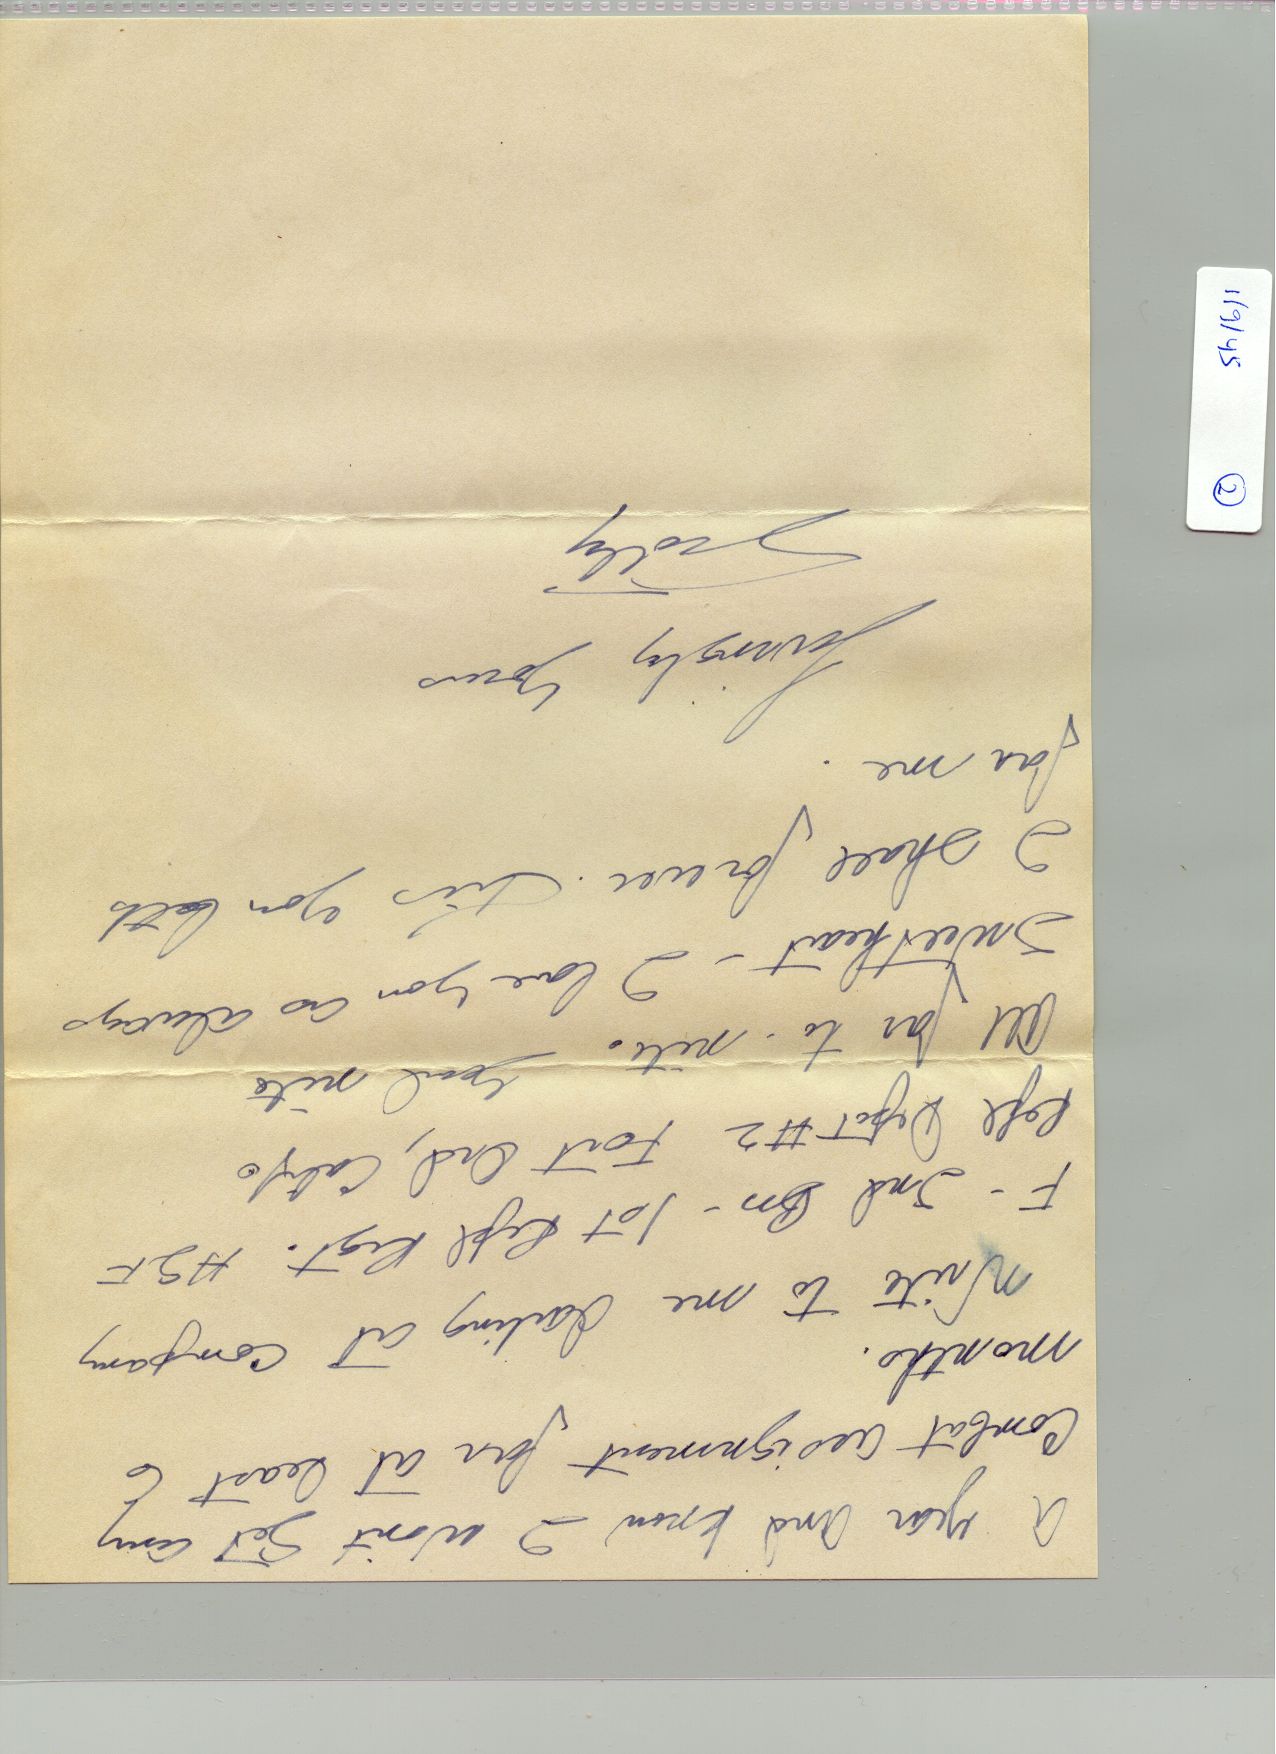 A year and know I won't get any
Combat assignment for at least 6
months.
Write to me darling at Company
F - 2nd Bn - 1st Repl Regt. #2F
Repl Depot #2 Fort Ord, Calif.
All for to-nite. Good nite
Sweetheart - I love you as always
I shall forever. Kiss you both
for me.
Lovingly yours
1/9/45
2